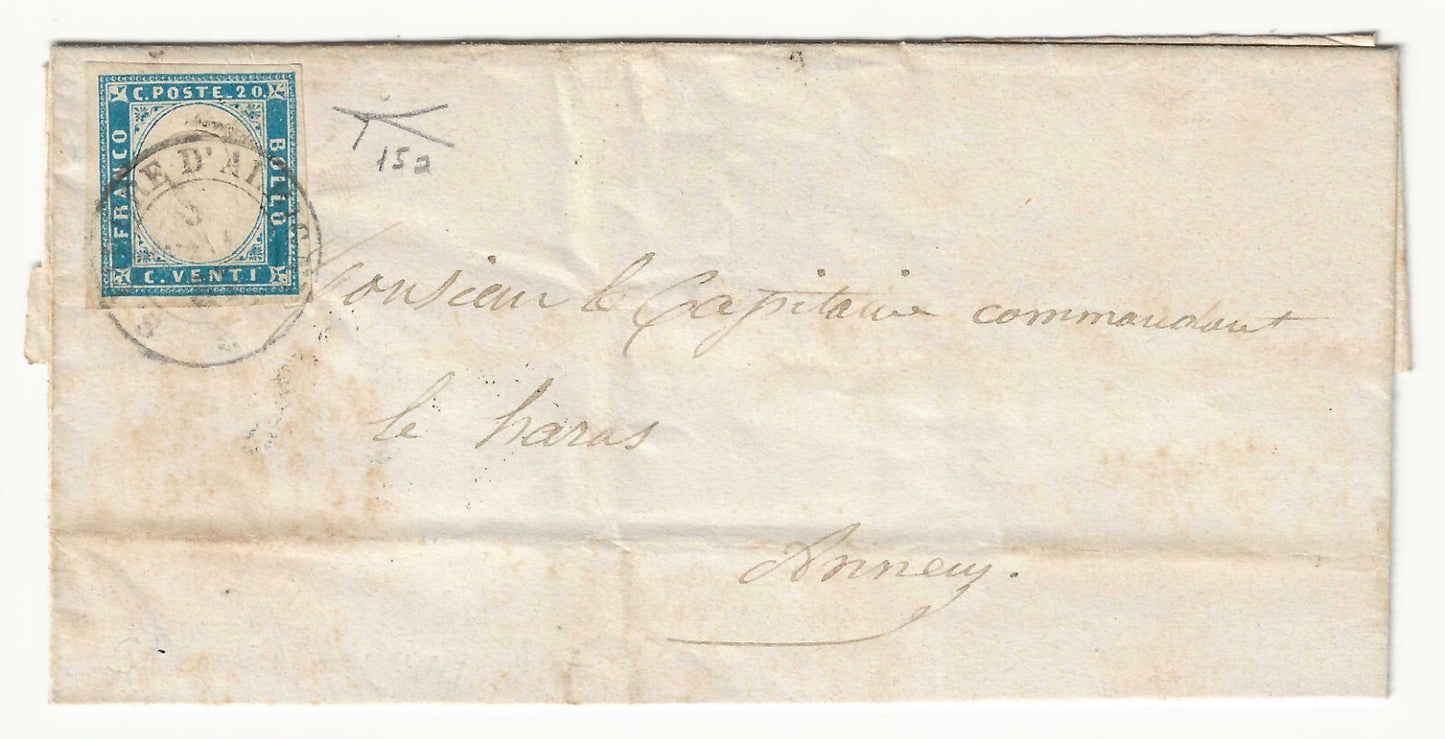 C. POSTE. 20.
FRANCO
BOLLO
C. VENTI
RE D'AL
15a
Monsieur le Capitaine commandant
le haras
Annecy.